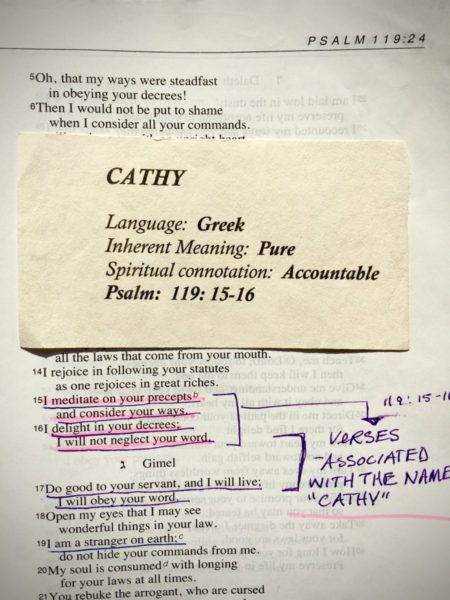 PSALM 119:24
⁵Oh, that my ways were steadfast
in obeying your decrees!
⁶Then I would not be put to shame
when I consider all your commands.
CATHY
Language: Greek
Inherent Meaning: Pure
Spiritual connotation: Accountable
Psalm: 119: 15-16
all the laws that come from your mouth.
¹⁴I rejoice in following your statutes
as one rejoices in great riches.
¹⁵I meditate on your precepts
and consider your ways.
¹⁶I delight in your decrees;
I will not neglect your word.
ג Gimel
¹⁷Do good to your servant, and I will live;
I will obey your word.
¹⁸Open my eyes that I may see
wonderful things in your law.
¹⁹I am a stranger on earth;ᶜ
do not hide your commands from me.
²⁰My soul is consumedᵈ with longing
for your laws at all times.
²¹You rebuke the arrogant, who are cursed
119:15-1
VERSES
-ASSOCIATED
WITH THE NAME
"CATHY"